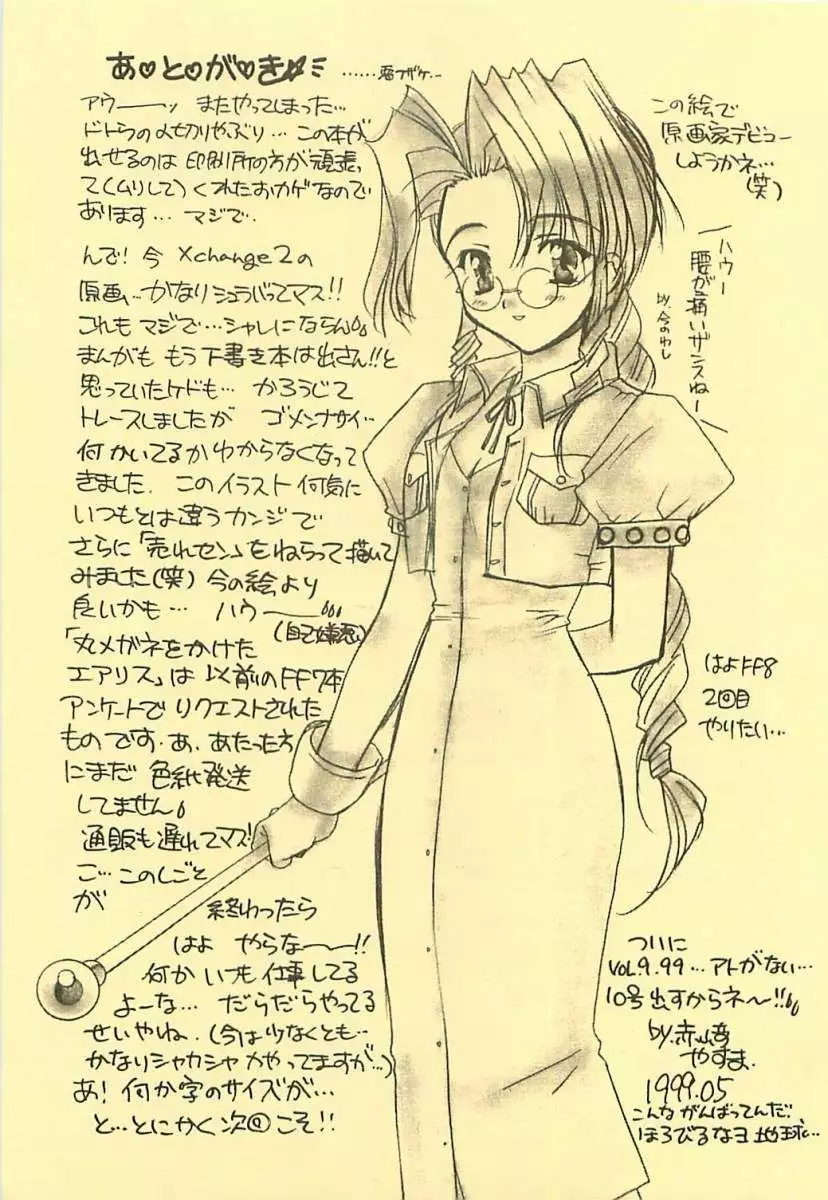 あ♡と♡が♡き☆ミ
アウーーッ またやってしまった…
ドトウの〆切りやぶり…この本が
出せるのは印刷所の方が頑張っ
て(ムリして)くれたおカゲなので
あります…マジで.
んで!今 Xchange2の
原画、…かなりシュラバってマス!!
これもマジで…シャレにならん
まんがも もう下書き本は出さん!!と
思っていたケドも… かろうじて
トレースしましたが ゴメンナサイ…
何かいてるかわからなくなって
きました. このイラスト何気に
いつもとは違うカンジで
さらに「売れセン」をねらって描いて
みました(笑) 今の絵より
良いかも… ハウーー
(自己嫌悪)
「丸メガネをかけた
エアリス」は以前のFF7本
アンケートでリクエストされた
ものです.あ、あたった方
にまだ 色紙発送
してません
通販も遅れてマス!
ご…このしごと
が
終わったら
はよ やらな〜〜!!
何かいつも仕事してる
よーな… だらだらやってる
せいやね.(今は少なくとも…
かなりシャカシャカやってますが…)
あ!何か字のサイズが…
と…とにかく次回こそ!!
この絵で
原画家デビュー
しようかネ…
(笑)
ハウー
腰が痛いザンスねー
by.今のわし
はよFF8
2回目
やりたい…
ついに
VOL.9.99…アトがない…
10号出すからネ〜!!
by.赤崎
やすま.
1999.05
こんながんばってんだ、
ほろびるなヨ 地球…